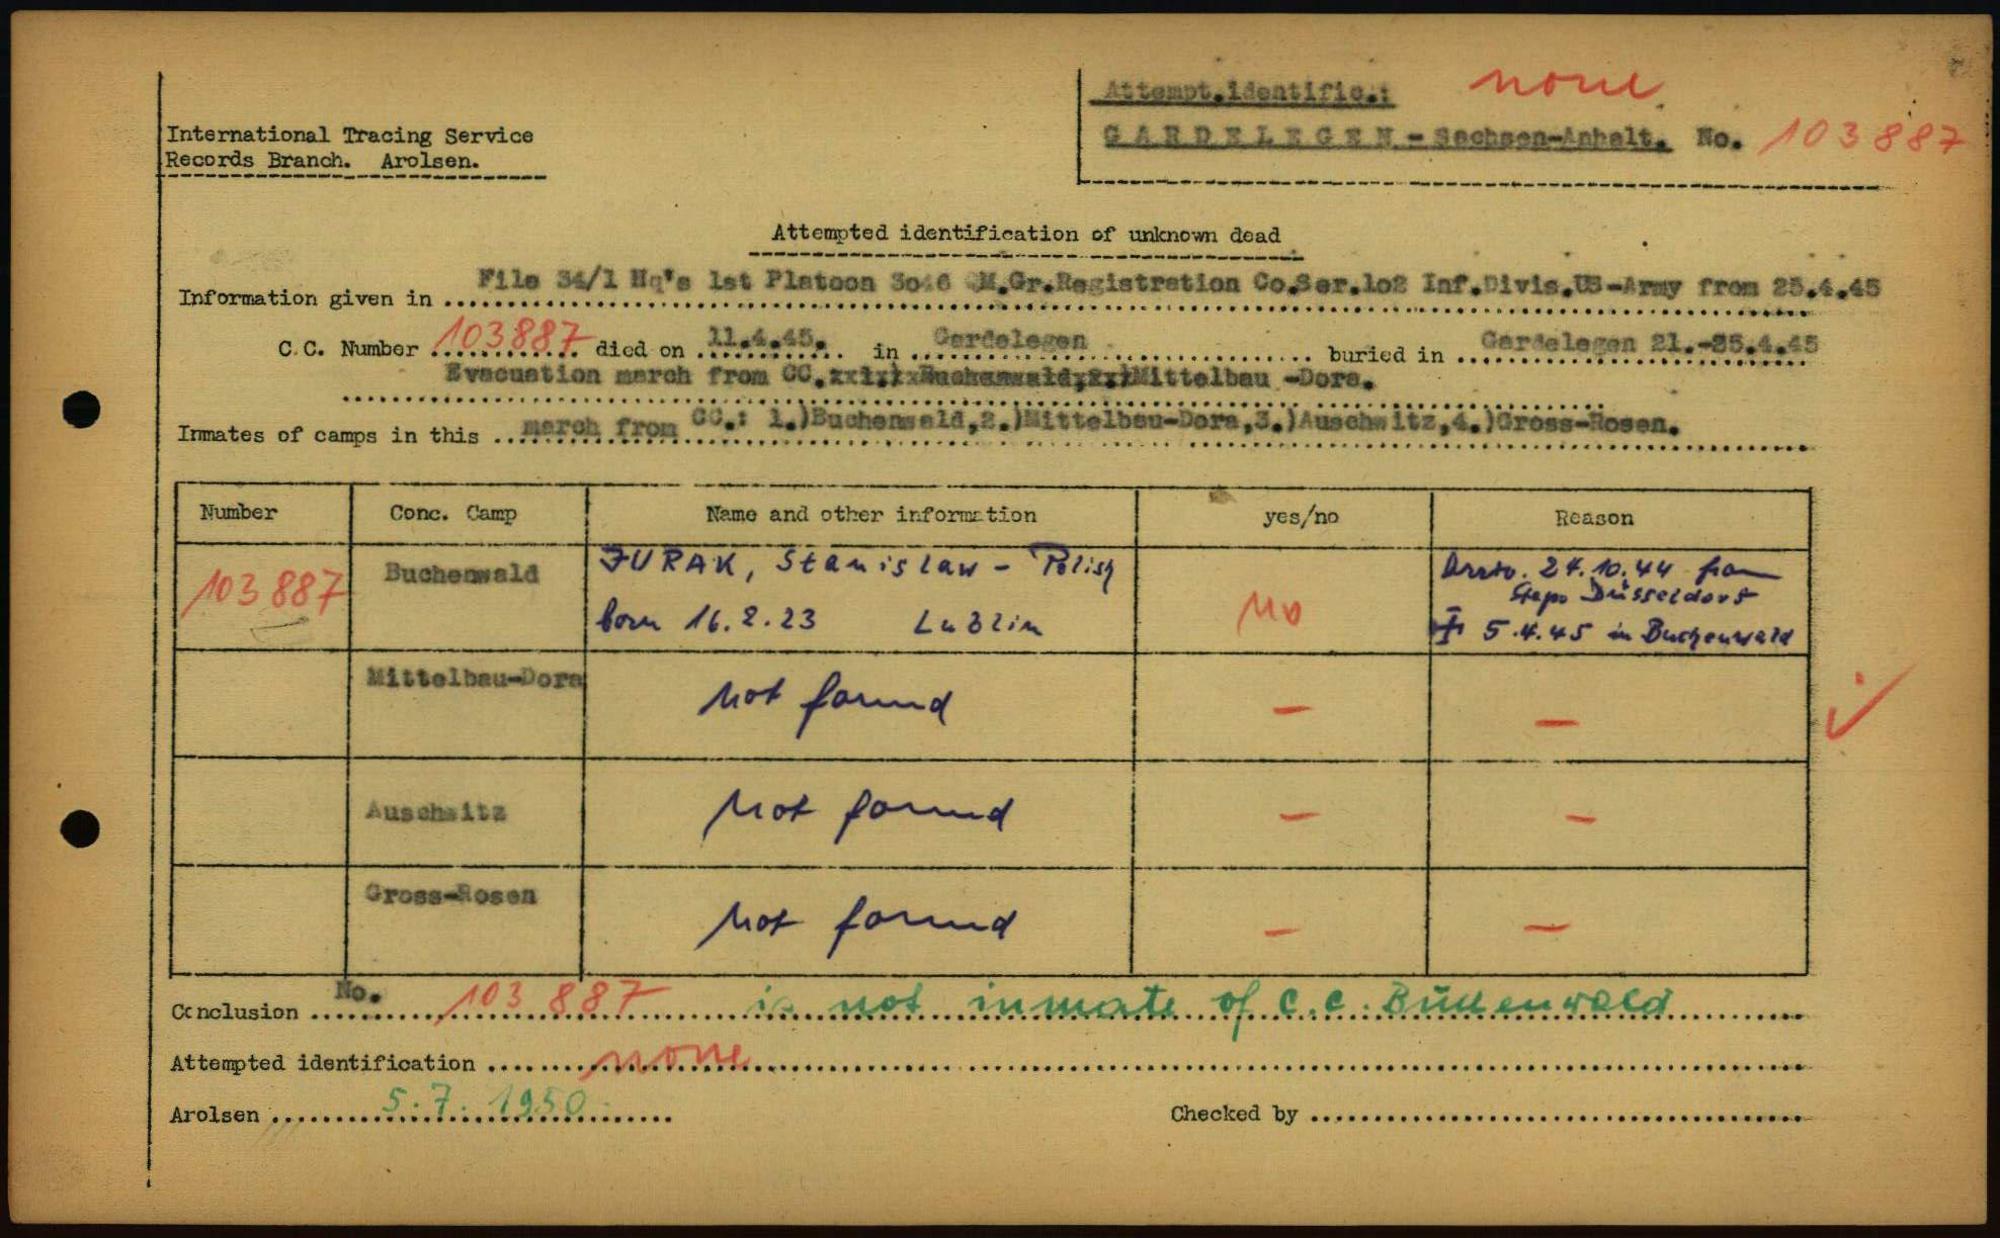 Attempt.identific.: none
International Tracing Service
Records Branch. Arolsen.
GARDELEGEN - Sachsen-Anhalt. No. 103887
Attempted identification of unknown dead
Information given in File 34/1 Hq's 1st Platoon 3o46 QM.Gr.Registration Co.Ser.1o2 Inf.Divis.US-Army from 25.4.45
C.C. Number 103887 died on 11.4.45. in Gardelegen buried in Gardelegen 21.-25.4.45
Evacuation march from CC. Mittelbau -Dora.
Inmates of camps in this march from CC.: 1.)Buchenwald,2.)Mittelbau-Dora,3.)Auschwitz,4.)Gross-Rosen.
Number Conc. Camp Name and other information yes/no Reason
103887 Buchenwald JURAK, Stanislaw - Polish
born 16.2.23 Lublin
no
Arriv. 24.10.44 from
Stapo Düsseldorf
5.4.45 in Buchenwald
Mittelbau-Dora not found - -
Auschwitz not found - -
Gross-Rosen not found - -
Conclusion No. 103887 is not inmate of C.C. Buchenwald
Attempted identification none
Arolsen 5.7.1950
Checked by